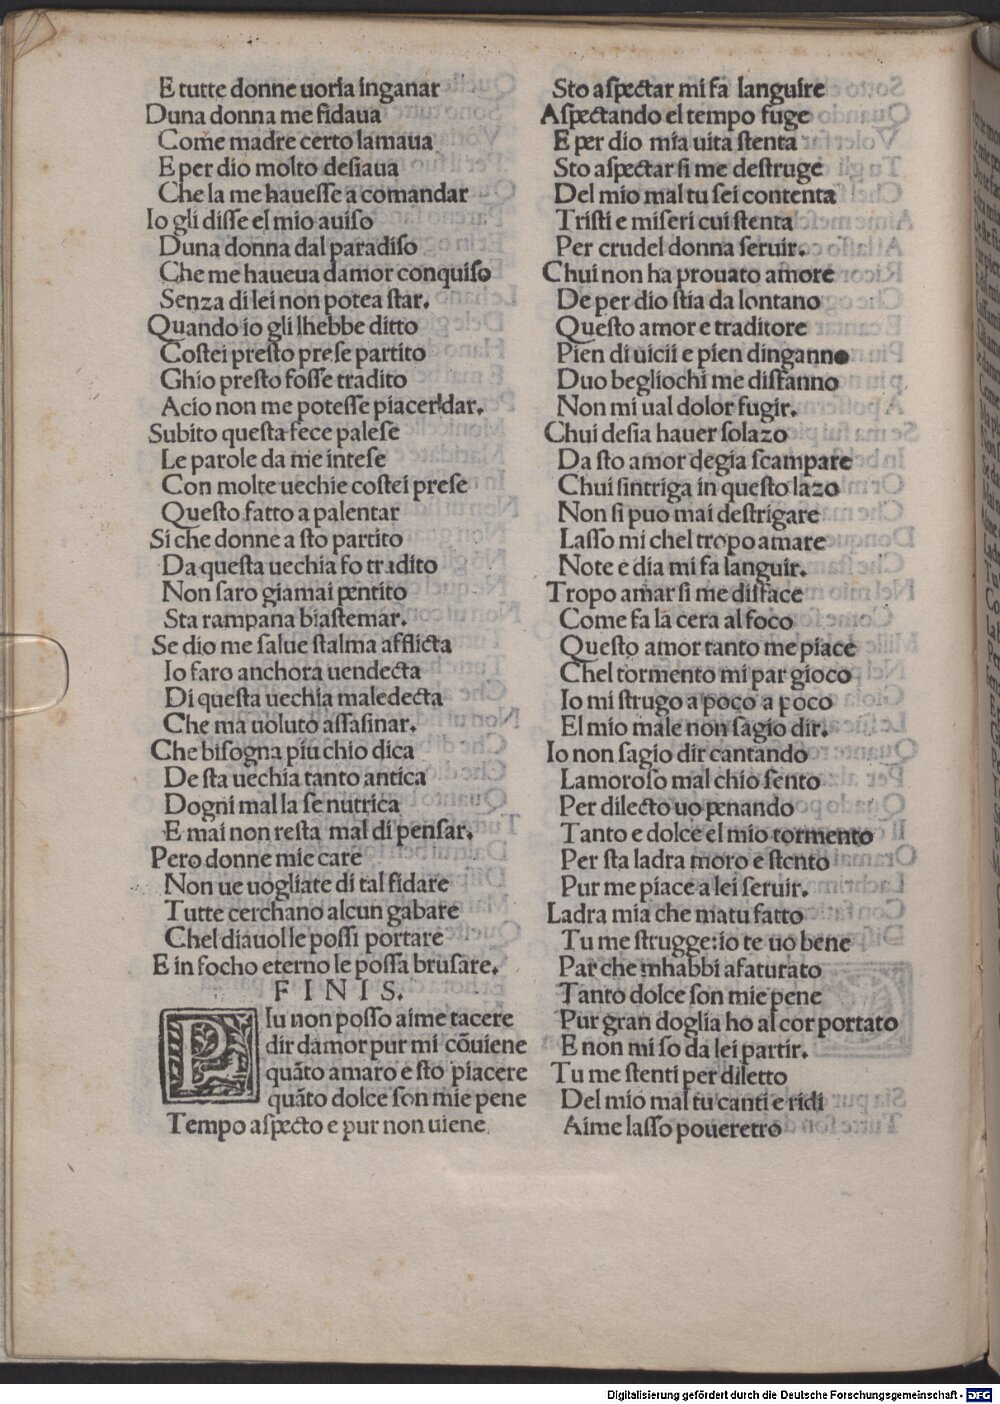 E tutte donne uoria inganar
Duna donna me fidaua
Come madre certo lamaua
E per dio molto desiaua
Che la me hauesse a comandar
Io gli disse el mio auiso
Duna donna dal paradiso
Che me haueua damor conquiso
Senza di lei non potea star.
Quando io gli lhebbe ditto
Costei presto prese partito
Ghio presto fosse tradito
Acio non me potesse piacer dar.
Subito questa fece palese
Le parole da me intese
Con molte uechie costei prese
Questo fatto a palentar
Si che donne a sto partito
Da questa uechia fo tradito
Non saro giamai pentito
Sta rampana biastemar.
Se dio me salue stalma afflicta
Io faro anchora uendecta
Di questa uechia maledecta
Che ma uoluto assasinar.
Che bisogna piu chio dica
De sta uechia tanto antica
Dogni mal la se nutrica
E mai non resta mal di pensar.
Pero donne mie care
Non ue uogliate di tal fidare
Tutte cerchano alcun gabare
Chel diauol le possi portare
E in focho eterno le possa brusare.
FINIS.
PIu non posso aime tacere
dir damor pur mi cõuiene
quãto amaro e sto piacere
quãto dolce son mie pene
Tempo aspecto e pur non uiene
Sto aspectar mi fa languire
Aspectando el tempo fuge
E per dio mia uita stenta
Sto aspectar si me destruge
Del mio mal tu sei contenta
Tristi e miseri cui stenta
Per crudel donna seruir.
Chui non ha prouato amore
De per dio stia da lontano
Questo amor e traditore
Pien di uicii e pien dinganno
Duo begliochi me disfanno
Non mi ual dolor fugir.
Chui desia hauer solazo
Da sto amor degia scampare
Chui sintriga in questo lazo
Non si puo mai destrigare
Lasso mi chel tropo amare
Note e dia mi fa languir.
Tropo amar si me disface
Come fa la cera al foco
Questo amor tanto me piace
Chel tormento mi par gioco
Io mi strugo a poco a poco
El mio male non sagio dir.
Io non sagio dir cantando
Lamoroso mal chio sento
Per dilecto uo penando
Tanto e dolce el mio tormento
Per sta ladra moro e stento
Pur me piace a lei seruir.
Ladra mia che matu fatto
Tu me strugge: io te uo bene
Par che mhabbi afaturato
Tanto dolce son mie pene
Pur gran doglia ho al cor portato
E non mi so da lei partir.
Tu me stenti per diletto
Del mio mal tu canti e ridi
Aime lasso poueretro
Digitalisierung gefördert durch die Deutsche Forschungsgemeinschaft - DFG